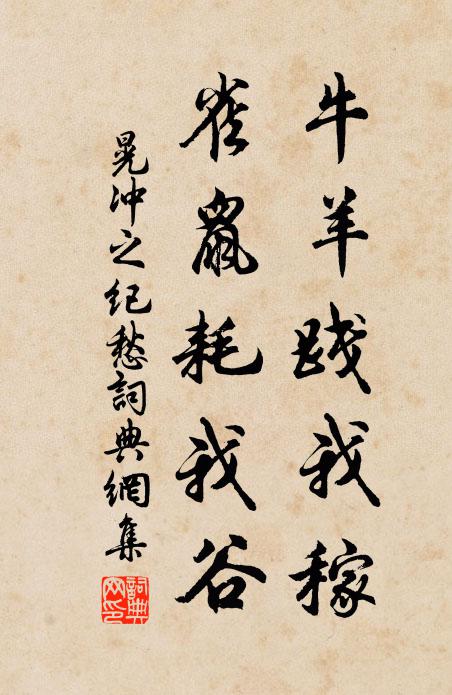 牛羊践我稼
雀鼠耗我谷
晁冲之纪愁詞典網集
詞典网印